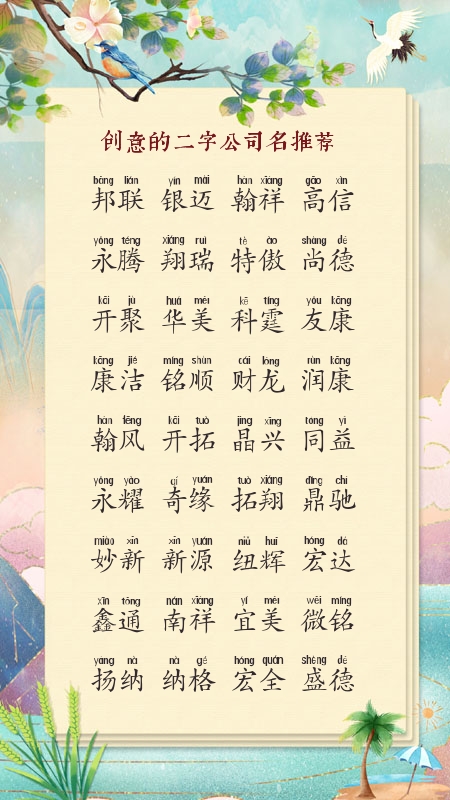 创意的二字公司名推荐
bāng lián yín mài hàn xiáng gāo xìn
邦联 银迈 翰祥 高信
yǒng téng xiáng ruì tè ào shàng dé
永腾 翔瑞 特傲 尚德
kāi jù huá měi kē tíng yǒu kāng
开聚 华美 科霆 友康
kāng jié míng shùn cái lóng rùn kāng
康洁 铭顺 财龙 润康
hàn fēng kāi tuò jīng xīng tóng yì
翰风 开拓 晶兴 同益
yǒng yào qí yuán tuò xiáng dǐng chí
永耀 奇缘 拓翔 鼎驰
miào xīn xīn yuán niǔ huī hóng dá
妙新 新源 纽辉 宏达
xīn tōng nán xiáng yí měi wēi míng
鑫通 南祥 宜美 微铭
yáng nà nà gé hóng quán shèng dé
扬纳 纳格 宏全 盛德